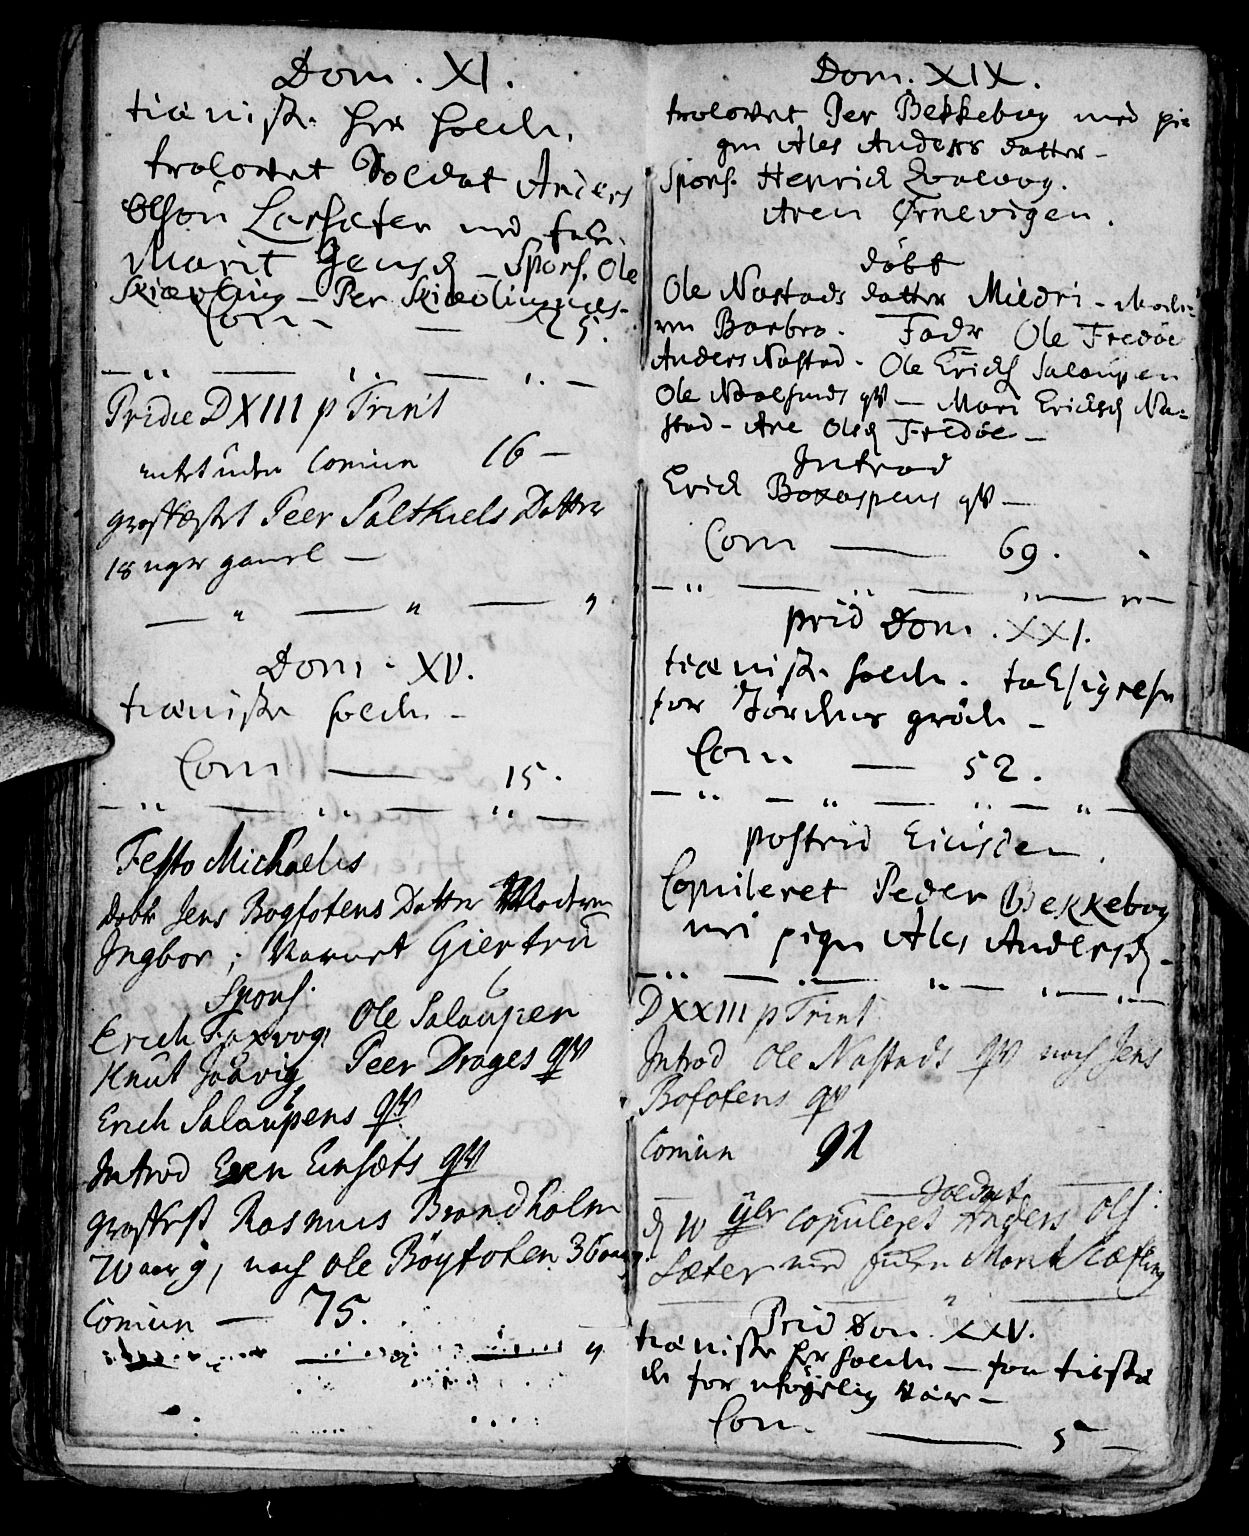 Dom. XI.
tieniste her holden.
trolovet Soldat Anders
Olsøn Larsæter med
Marit Jensd – Spons. Ole
Skiævling – Per Skiævlingnes.
Com – 25.
Pridie D XIII p Trinit
uden Comun 16 –
grafkæstet Peer Saltkiels Datter
18 uger gamel –
Dom. XV.
tieniste holden –
Com – 15.
Festo Michaelis
døbt Jens Bogfotens Datter Moderen
Ingbor; Navnet Giertru
Spons.
Erich Foxvog, Ole Salaupen
Knut Jøavig, Peer Drages qv
Erich Salaupens qv
Introd Even Einsæts qv
grafkest Rasmus Brandholm
70 aar g, noch Ole Böyfoten 36 aar g
Comun – 75.
Dom. XIX.
trolovet Per Bekkebog med pi=
gen Ales Anders datter –
Spons. Henrich Qvalvog.
Aren Ørnevigen.
døbt
Ole Nastads datter Mildri – Mode=
ren Barbro. Fadr Ole Fredöe
Anders Nastad. Ole Erichs Salaupen
Ole qv – Mari Ericksd Na=
stad – Ane Olsd Fredöe –
Introd
Erich Boxaspens qv –
Com – 69.
prid Dom. XXI.
tieniste holden. taksigelse
for Jordens gröde –
Com. – 52.
postrid Eiusdem.
Copuleret Peder Bekkebog
med pigen Ales Andersd. –
D XXIII p Trinit
Introd Ole Nastads qv noch Jens
Bofotens qv
Comun 91
Soldat
copuleret Anders Ols.
Sæter med Marit Skæfling
Prid Dom. XXV.
tieniste her holden –
for vær –
Com. – 5 –